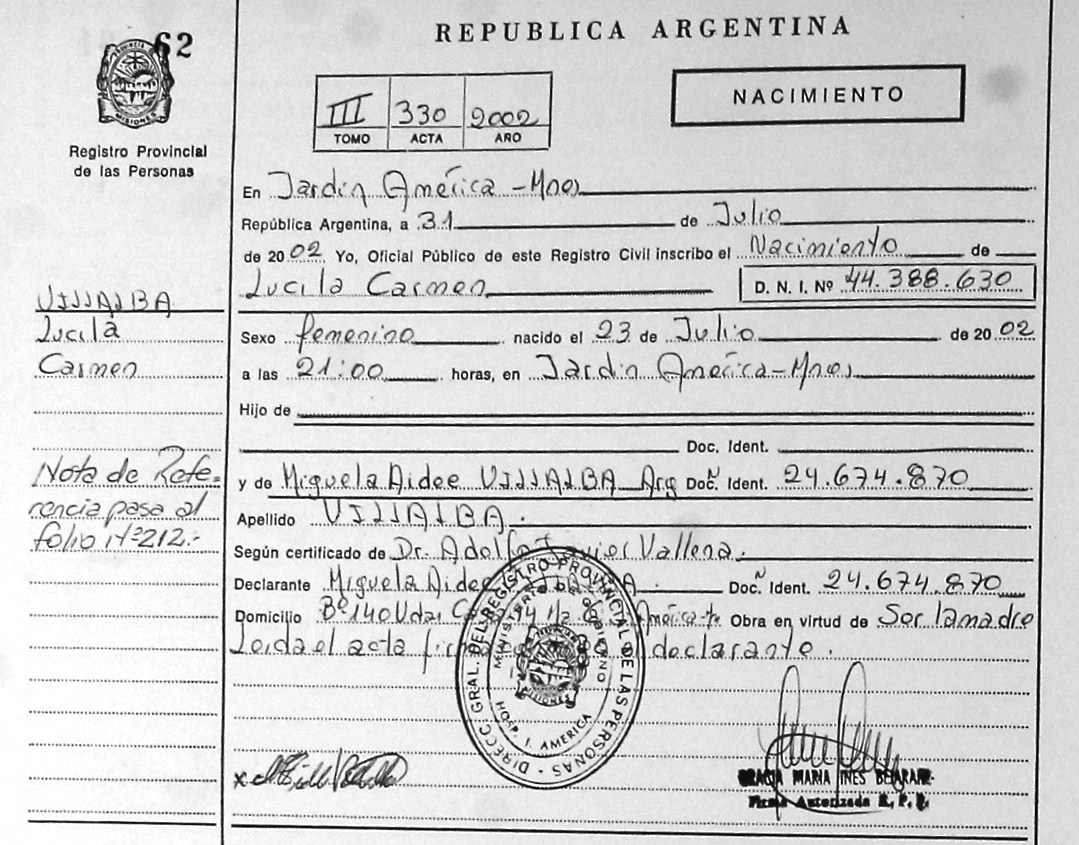 62
REPUBLICA ARGENTINA
PROVINCIA
MISIONES
Registro Provincial
de las Personas
III 330 2002
TOMO ACTA AÑO
NACIMIENTO
En Jardín América - Mnes
República Argentina, a 31 de Julio
de 2002 Yo, Oficial Público de este Registro Civil inscribo el Nacimiento de
Lucila Carmen D. N. I. Nº 44.388.630
VILLALBA
Lucila
Carmen
Sexo femenino nacido el 23 de Julio de 2002
a las 21:00 horas, en Jardín América - Mnes
Hijo de
Doc. Ident.
Nota de Refe=
rencia pasa al
folio Nº 212.-
y de Miguela Aidee VILLALBA Arg Doc. Ident. 24.674.870
Apellido VILLALBA.
Según certificado de Dr. Adolfo Javier Vallena.
Declarante Miguela Aidee Doc. Ident. 24.674.870
Domicilio Bº 140 América Obra en virtud de Ser la madre
Leida el acta declarante.
DIRECC. GRAL. DEL REGISTRO PROVINCIAL DE LAS PERSONAS
MINISTERIO DE GOBIERNO
PROVINCIA
MISIONES
HOSP. J. AMERICA
GRACIA MARIA INES
Firma Autorizada R. P. P.